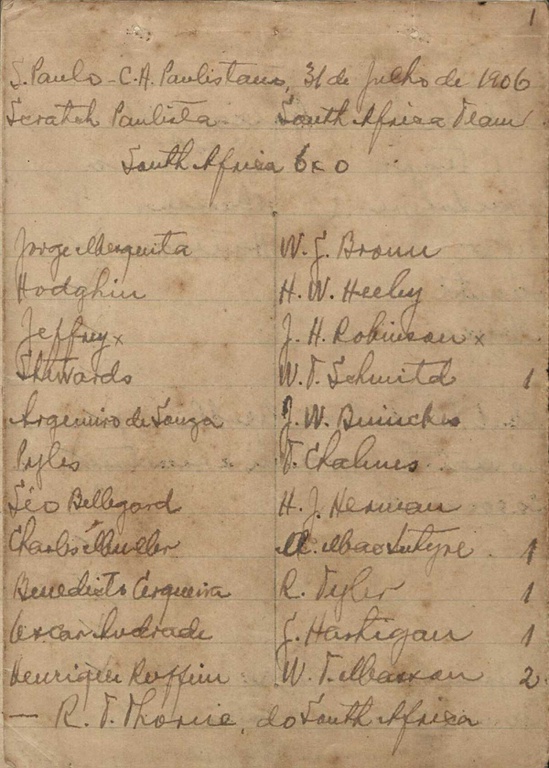 1
S. Paulo - C. A. Paulistano, 31 de Julho de 1906
Scratch Paulista South Africa Team
South Africa 6 x 0
Jorge Mesquita W. G. Brown
Hodgkin H. W. Heeley
Jeffrey x J. H. Robinson x
Stewards W. T. Schmitd 1
Argemiro de Souza J. W.
Pyles T. Chalmes
Léo Bellegard H. J. Heeman
Charles Mueller A. Mac Intyre 1
Benedicto Cerqueira R. Tyler 1
Oscar Andrade J. Hartigan 1
Henrique Ruffin W. T. Masson 2
— R. T. do South Africa